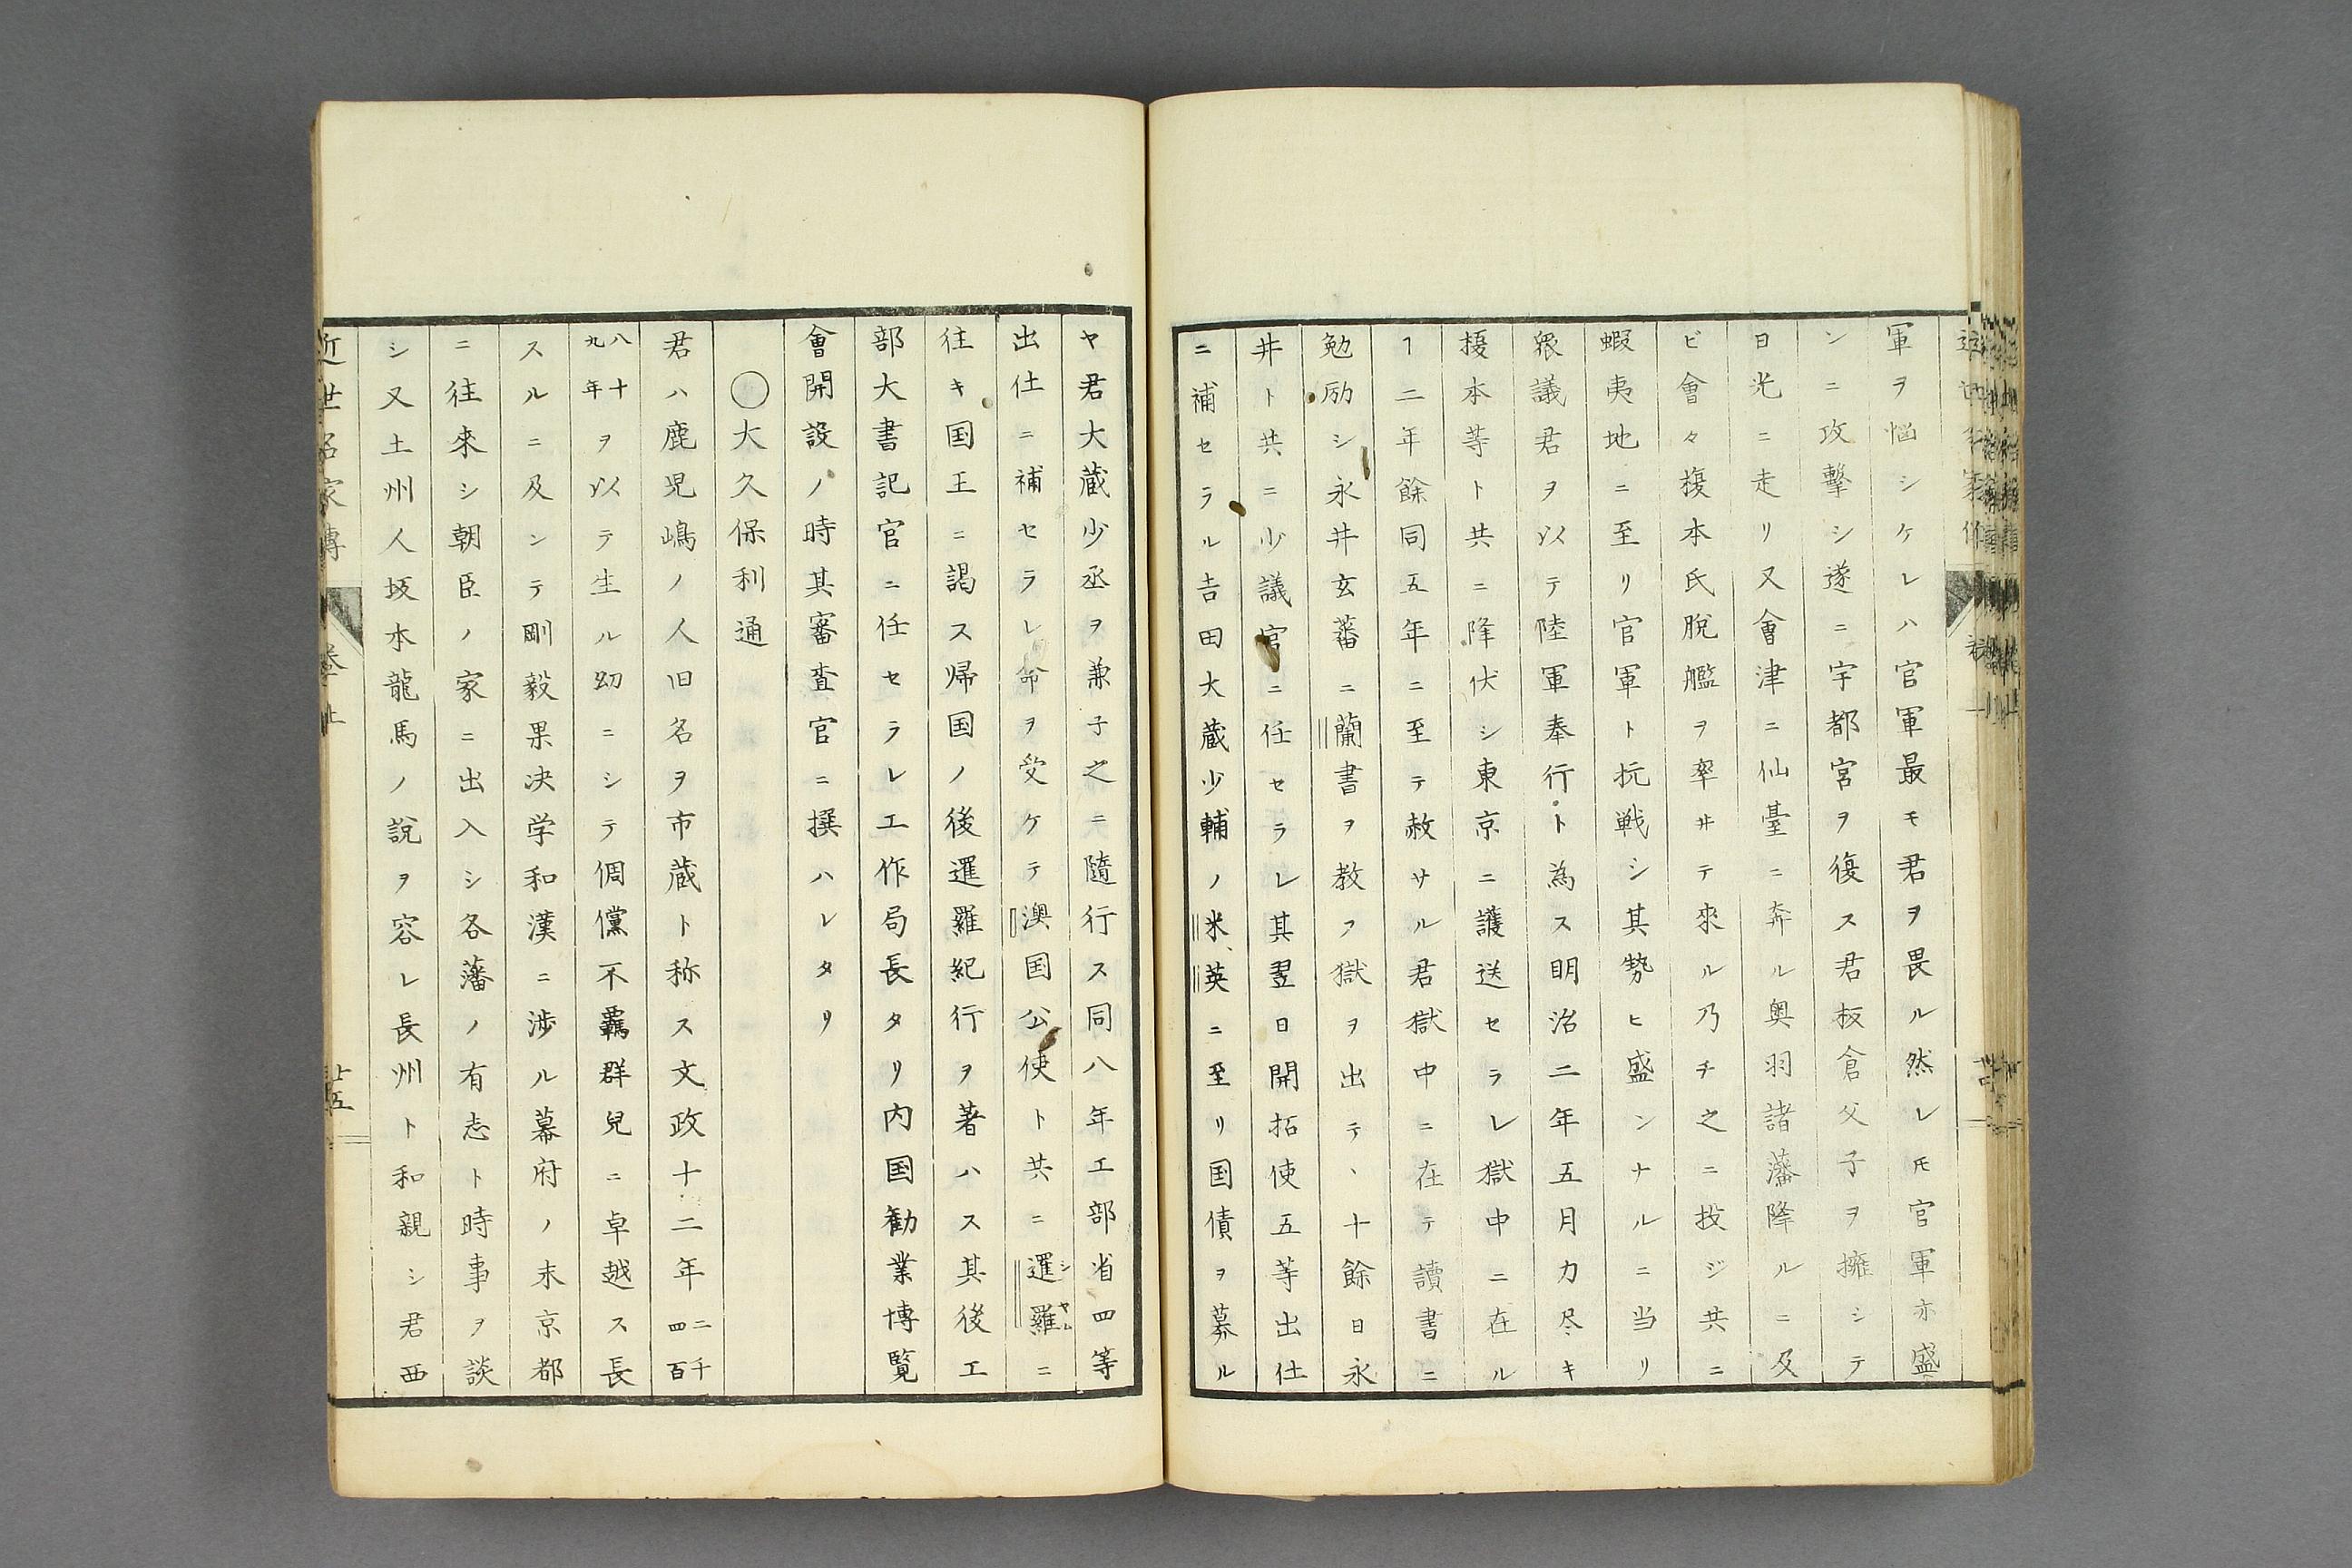 軍ヲ悩シケレハ官軍最モ君ヲ畏ル然レ𪜈官軍亦盛
ンニ攻擊シ遂ニ宇都宮ヲ復ス君板倉父子ヲ擁シテ
日光ニ走リ又會津ニ仙臺ニ奔ル奥羽諸藩降ルニ及
ビ會々榎本氏脫艦ヲ率ヰテ來ル乃チ之ニ投ジ共ニ
蝦夷地ニ至リ官軍ト抗戦シ其勢ヒ盛ンナルニ当リ
衆議君ヲ以テ陸軍奉行ト為ス明治二年五月力尽キ
榎本等ト共ニ降伏シ東京ニ護送セラレ獄中ニ在ル
ヿ二年餘同五年ニ至テ赦サル君獄中ニ在テ讀書ニ
勉励シ永井玄蕃ニ蘭書ヲ教フ獄ヲ出テ、十餘日永
井ト共ニ少議官ニ任セラレ其翌日開拓使五等出仕
ニ補セラル吉田大蔵少輔ノ米、英ニ至リ国債ヲ募ル
ヤ君大蔵少丞ヲ兼子之ニ隨行ス同八年工部省四等
出仕ニ補セラレ命ヲ受ケテ澳国公使ト共ニ暹羅ニ
シヤム
往キ国王ニ謁ス帰国ノ後暹羅紀行ヲ著ハス其後工
部大書記官ニ任セラレ工作局長タリ内国勧業博覧
會開設ノ時其審査官ニ撰ハレタリ
〇大久保利通
君ハ鹿児嶋ノ人旧名ヲ市蔵ト称ス文政十二年二千四百
八十九年ヲ以テ生ル幼ニシテ倜儻不羈群兒ニ卓越ス長
スルニ及ンテ剛毅果決学和漢ニ渉ル幕府ノ末京都
ニ往來シ朝臣ノ家ニ出入シ各藩ノ有志ト時事ヲ談
シ又土州人坂本龍馬ノ說ヲ容レ長州ト和親シ君西
近世名家傳 巻上 廿五